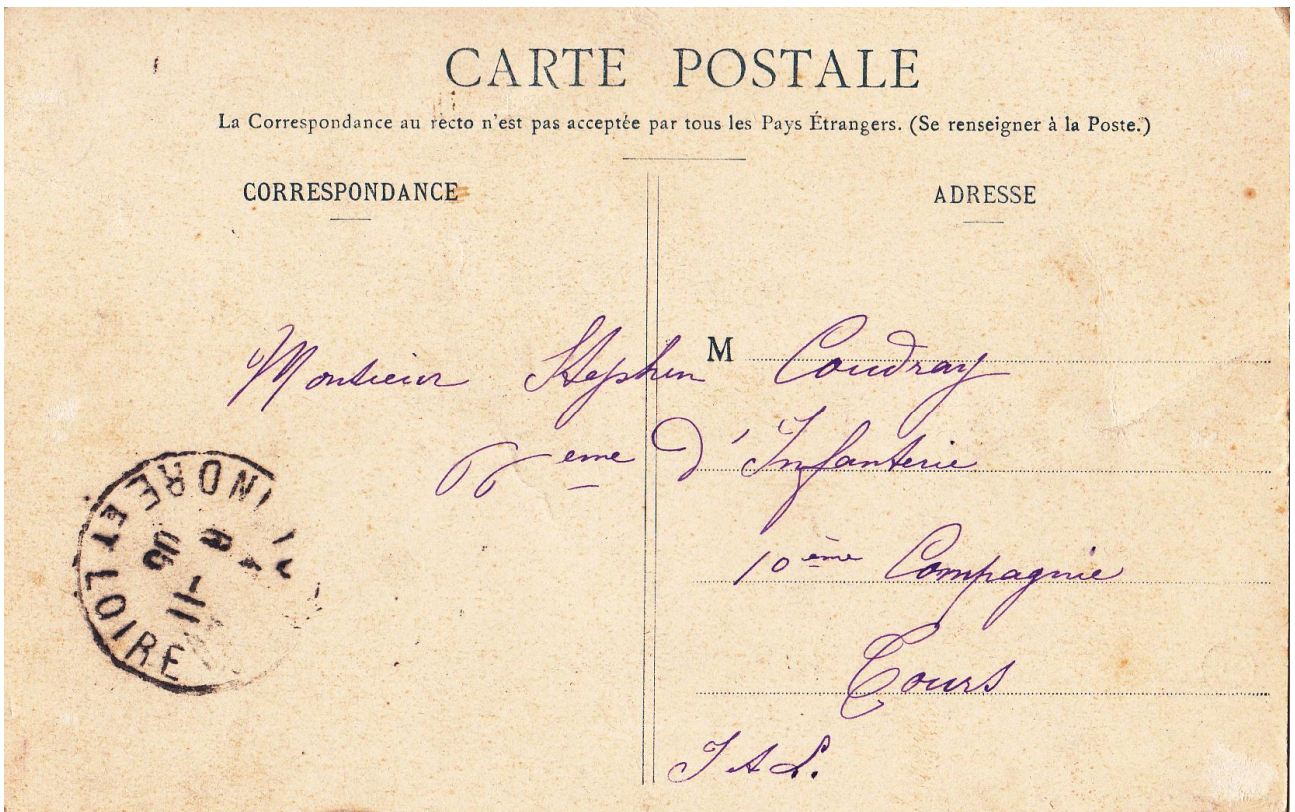 CARTE POSTALE
La Correspondance au recto n'est pas acceptée par tous les Pays Étrangers. (Se renseigner à la Poste.)
CORRESPONDANCE
ADRESSE
M
Monsieur Stephen Coudray
66 eme d'Infanterie
10 ème Compagnie
Tours
I & L.
INDRE ET LOIRE
11
05